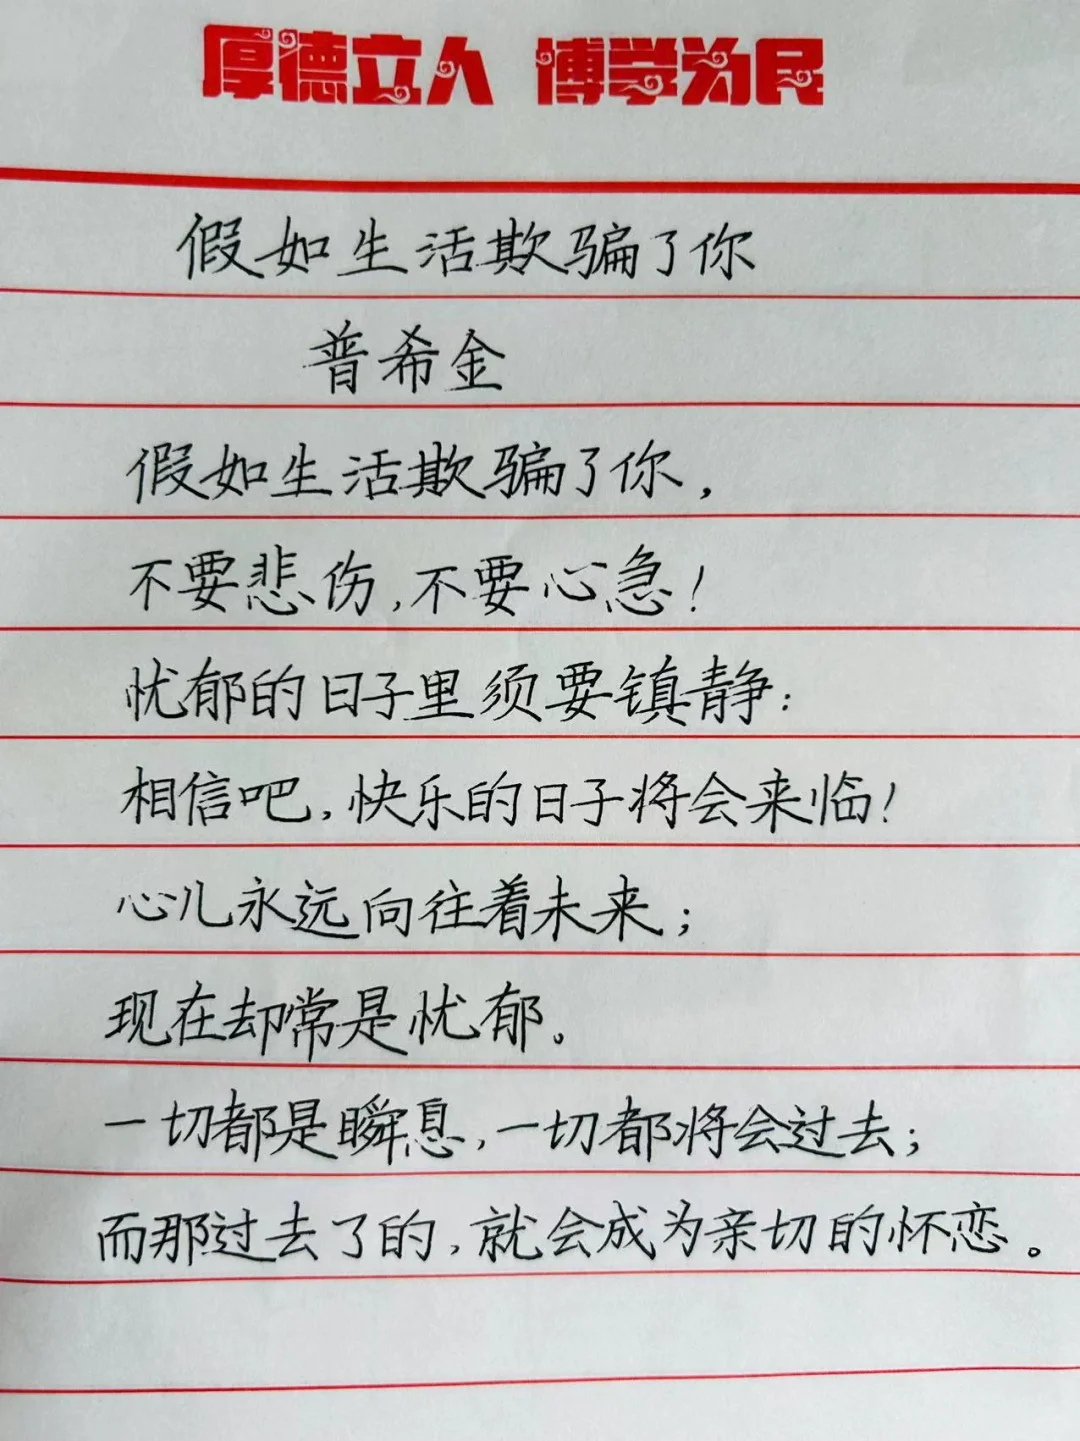 厚德立人 博学为民
假如生活欺骗了你
普希金
假如生活欺骗了你，
不要悲伤，不要心急！
忧郁的日子里须要镇静：
相信吧，快乐的日子将会来临！
心儿永远向往着未来；
现在却常是忧郁。
一切都是瞬息，一切都将会过去；
而那过去了的，就会成为亲切的怀恋。